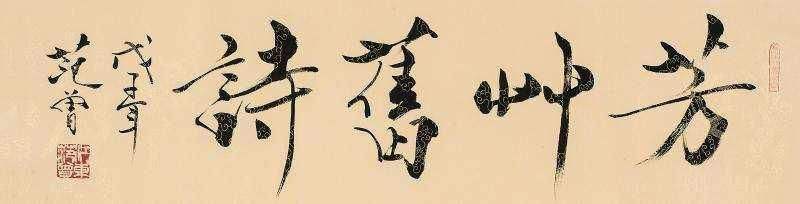 芳艸舊詩
戊子年
范曾